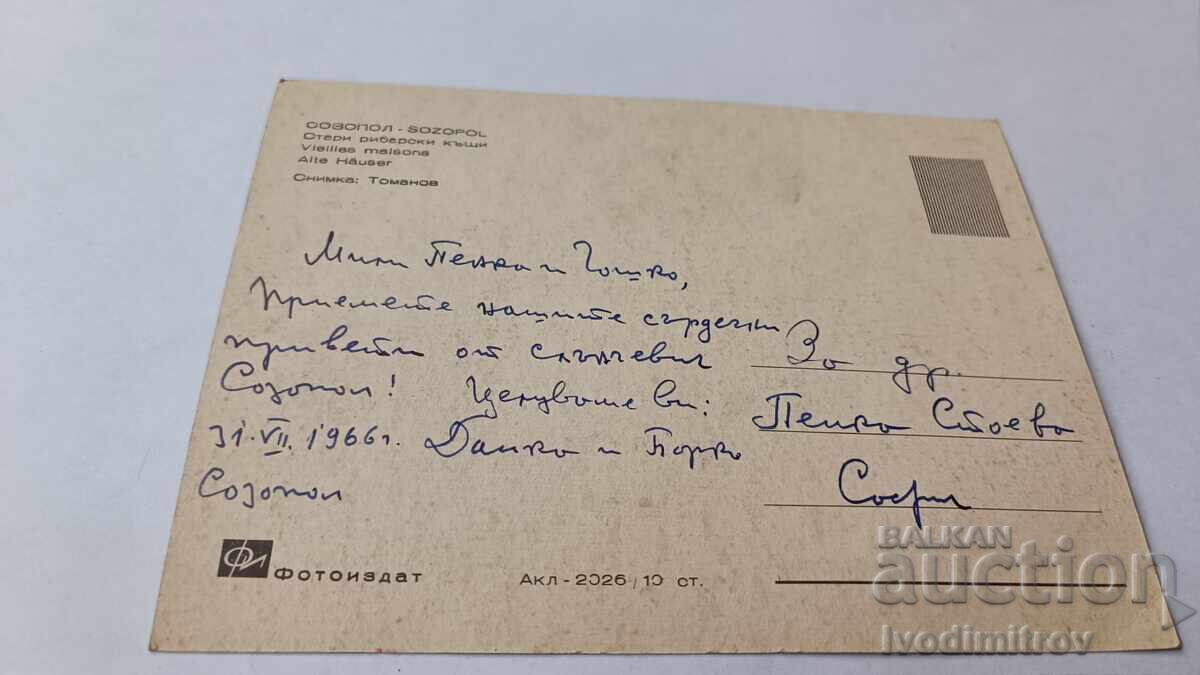 СОЗОПОЛ - SOZOPOL
Стари рибарски къщи
Vieilles maisons
Alte Häuser
Снимка: Томанов
Мили Пенка и Гошко,
Приемете нашите сърдечни
привети от слънчевия
Созопол! Целуваме ви:
31.VII.1966г. Данка и Борко
Созопол
За др.
Пенка Стоева
София
ФИ ФОТОИЗДАТ
Акл-2026 / 10 ст.
BALKAN
auction
Ivodimitrov